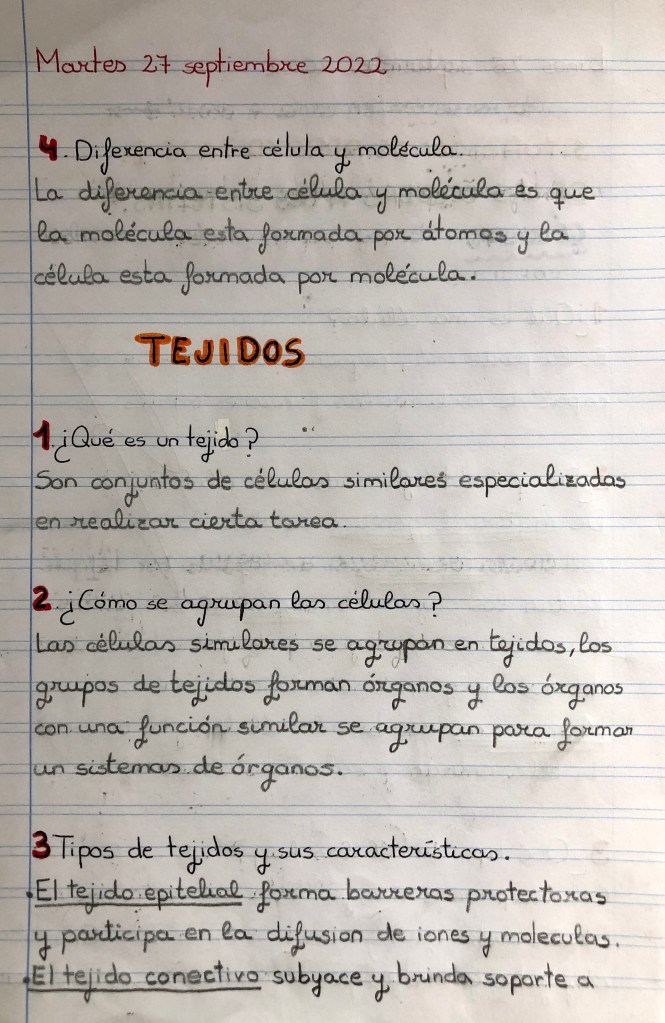 Martes 27 septiembre 2022
4. Diferencia entre célula y molécula.
La diferencia entre célula y molécula es que
la molécula esta formada por átomos y la
célula esta formada por molécula.
TEJIDOS
1. ¿Qué es un tejido?
Son conjuntos de células similares especializadas
en realizar cierta tarea.
2. ¿Cómo se agrupan las células?
Las células similares se agrupan en tejidos, los
grupos de tejidos forman órganos y los órganos
con una función similar se agrupan para formar
un sistemas de órganos.
3 Tipos de tejidos y sus características.
·El tejido epitelial forma barreras protectoras
y participa en la difusion de iones y moleculas.
·El tejido conectivo subyace y brinda soporte a